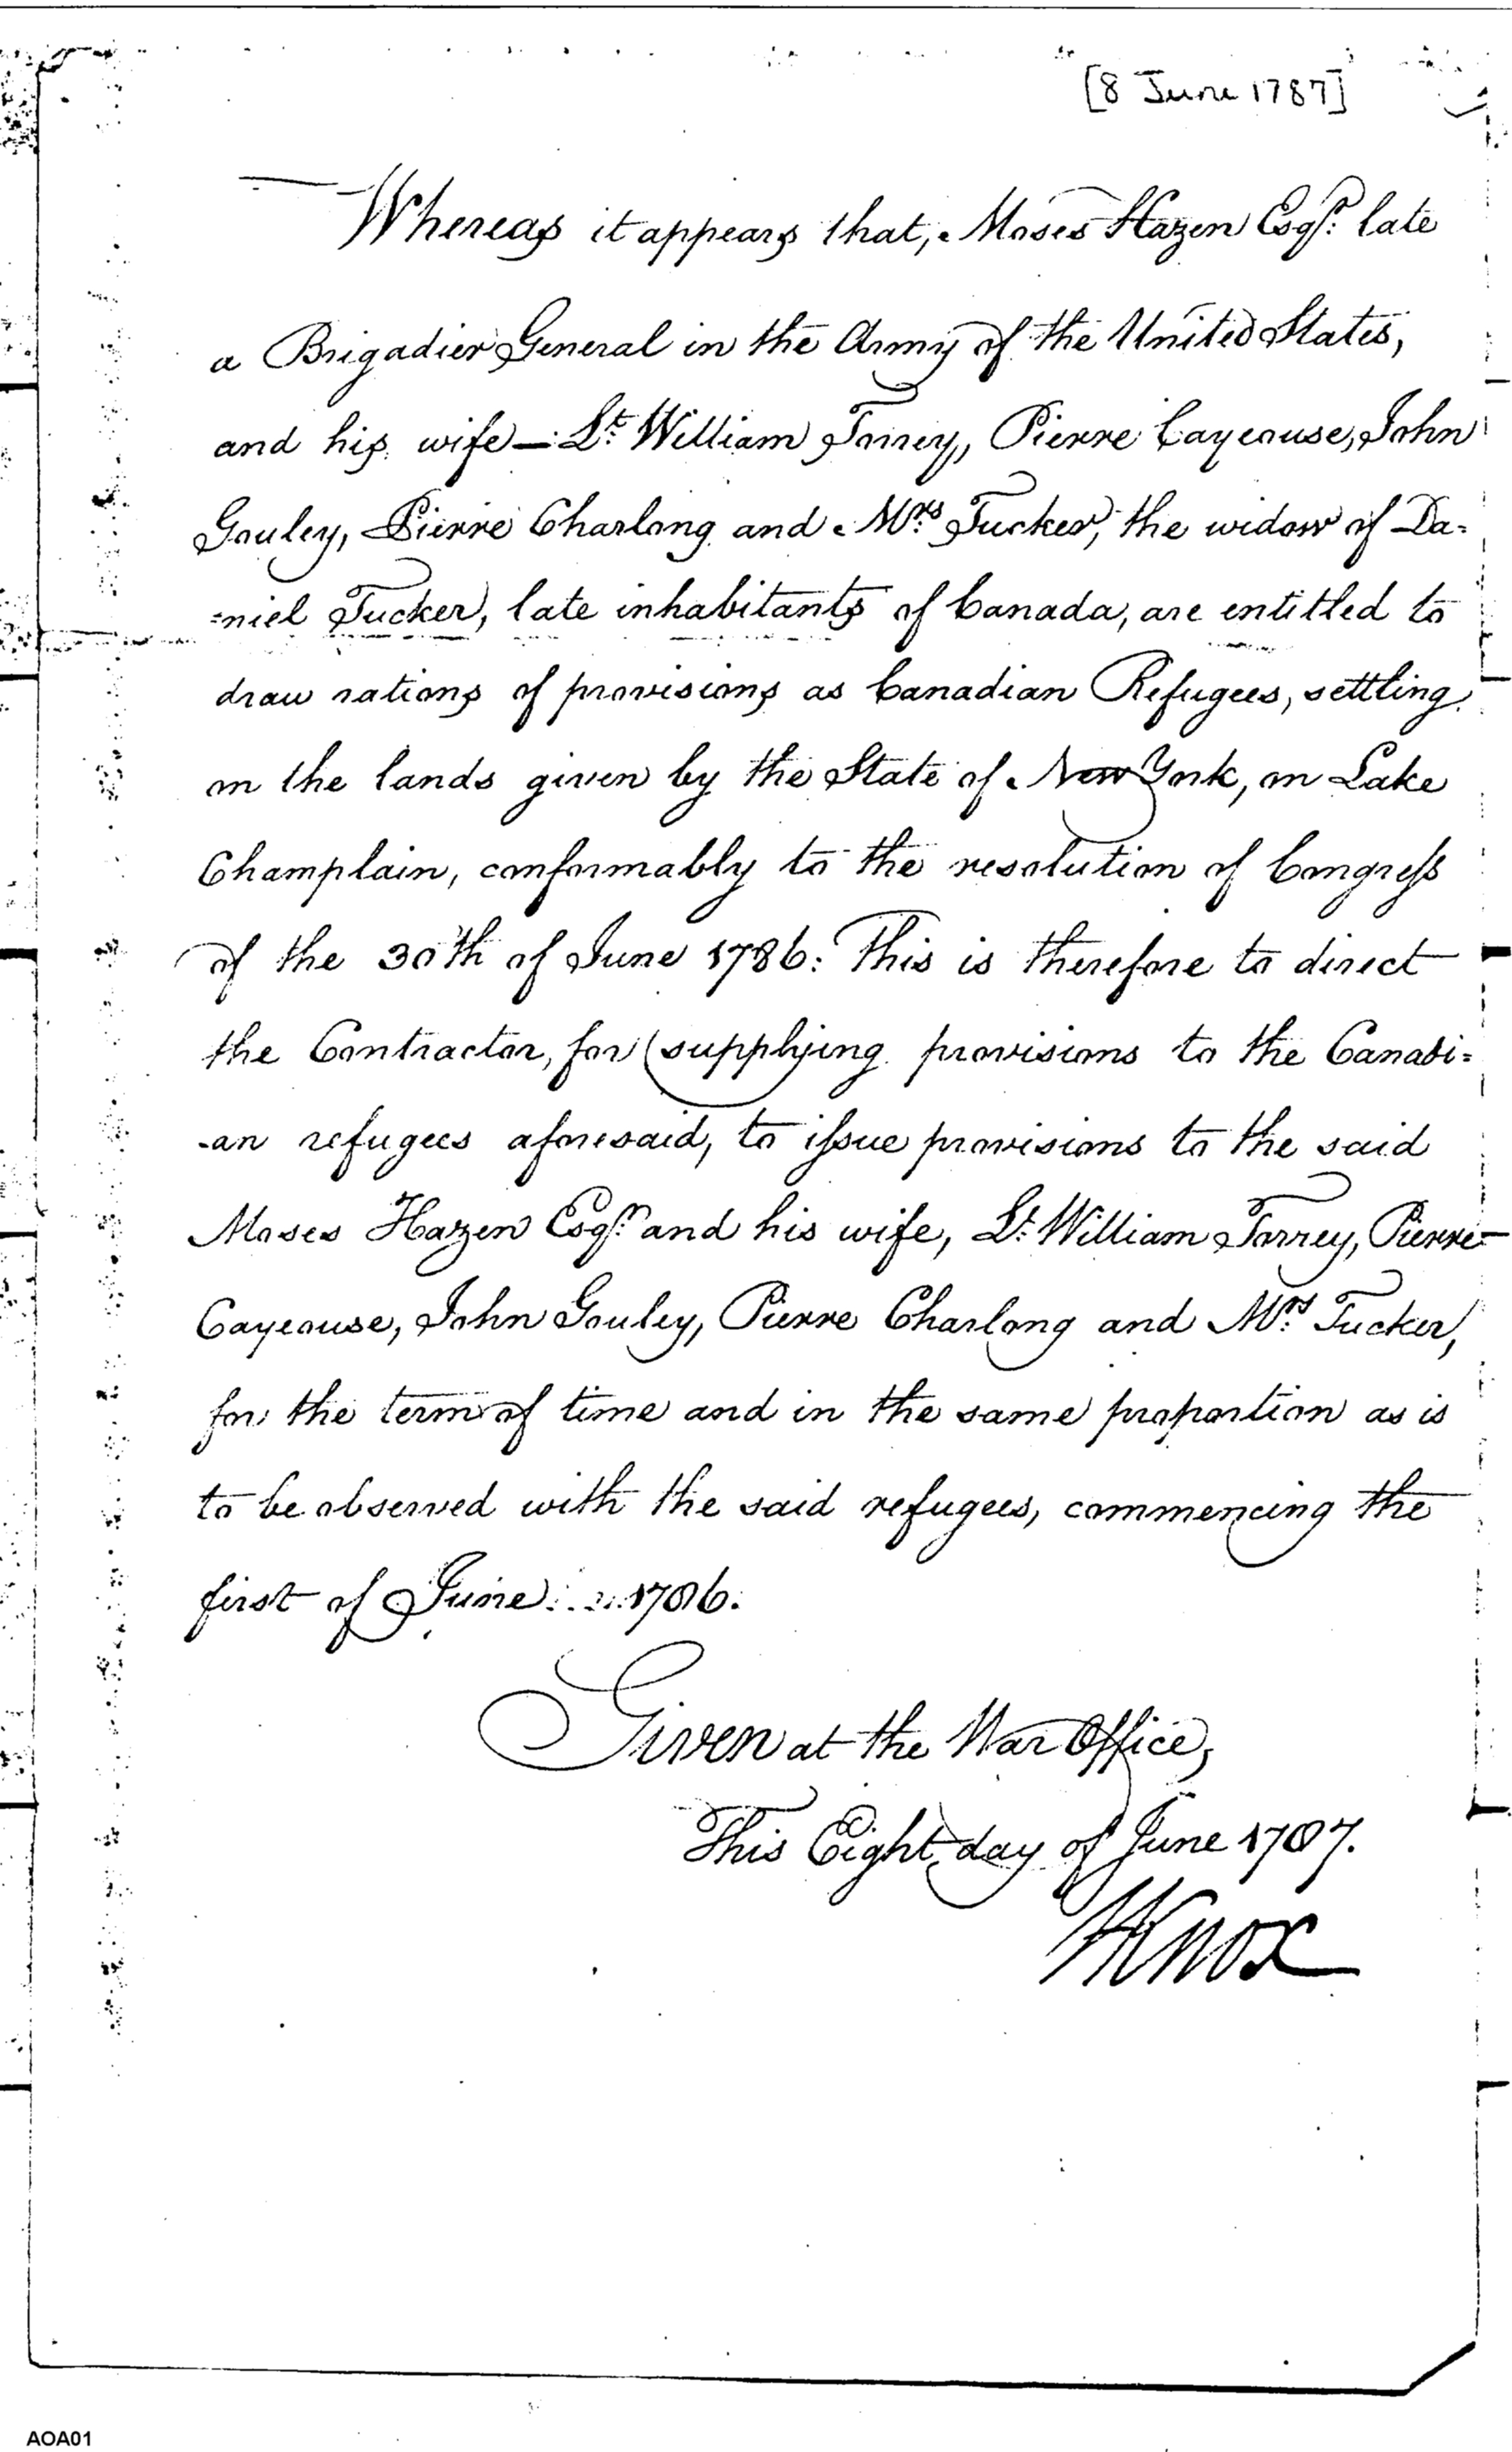 [8 June 1787]
Whereas it appears that, Moses Hazen Esqr. late
a Brigadier General in the Army of the United States,
and his wife — Lt. William Torrey, Pierre Cayeouse, John
Gouley, Pierre Charlong and Mrs. Tucker, the widow of Da=
=niel Tucker, late inhabitants of Canada, are entitled to
draw rations of provisions as Canadian Refugees, settling
on the lands given by the State of New York, on Lake
Champlain, conformably to the resolution of Congress
of the 30th of June 1786: This is therefore to direct
the Contractor, for supplying provisions to the Canadi=
-an refugees aforesaid, to issue provisions to the said
Moses Hazen Esqr. and his wife, Lt. William Torrey, Pierre
Cayeouse, John Gouley, Pierre Charlong and Mrs. Tucker,
for the term of time and in the same proportion as is
to be observed with the said refugees, commencing the
first of June 1786.
Given at the War Office,
This Eight day of June 1787.
HKnox
AOA01